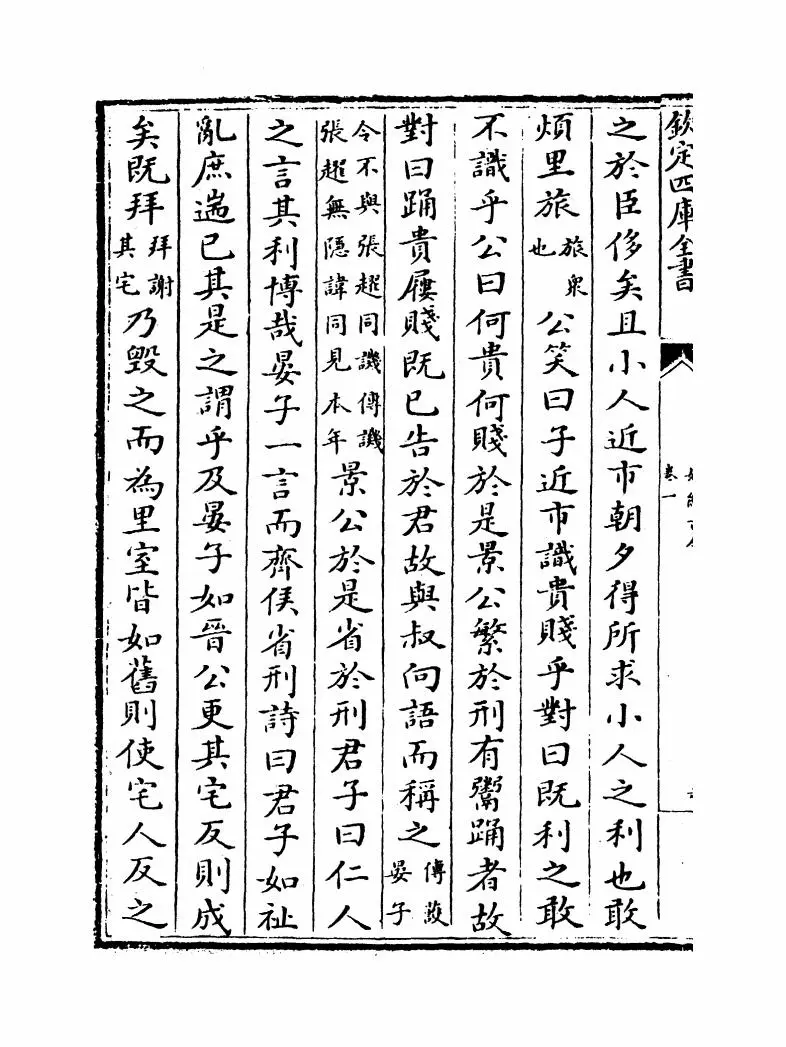 欽定四庫全書
卷一
之於臣侈矣且小人近市朝夕得所求小人之利也敢
煩里旅旅衆也公笑曰子近市識貴賤乎對曰既利之敢
不識乎公曰何貴何賤於是景公繁於刑有鬻踊者故
對曰踊貴屨賤既已告於君故與叔向語而稱之傳䕶晏子
令不與張趯同譏傳譏張趯無隱諱同見本年景公於是省於刑君子曰仁人
之言其利博哉晏子一言而齊侯省刑詩曰君子如祉
亂庶遄已其是之謂乎及晏子如晉公更其宅反則成
矣既拜拜謝其宅乃毀之而為里室皆如舊則使宅人反之